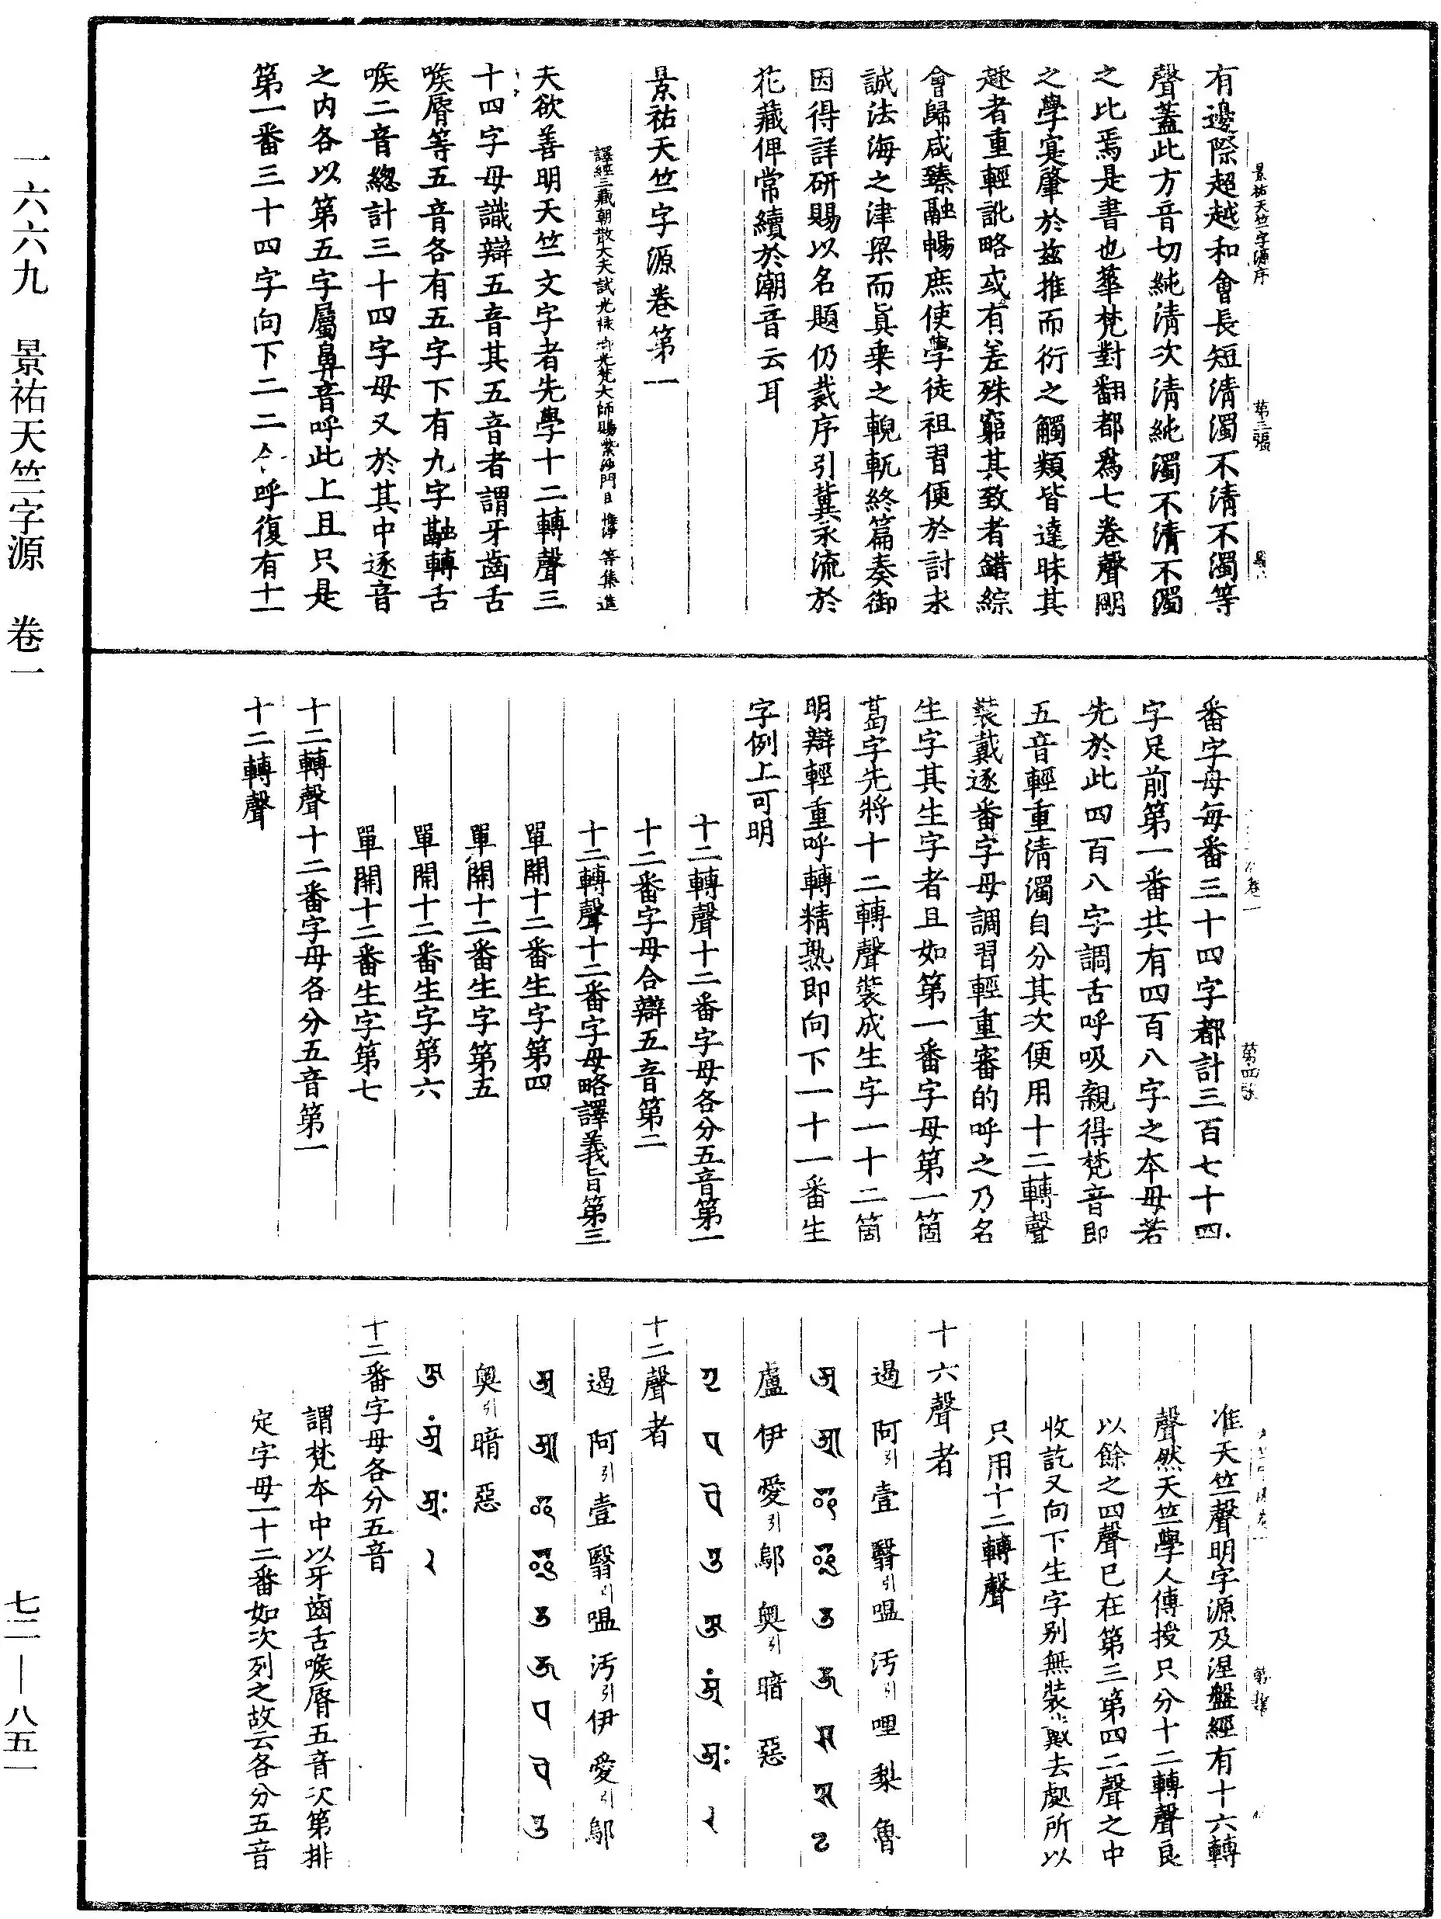 一六六九　景祐天竺字源　卷一
七二—八五一
景祐天竺字源序　第三張
有邊際超越和會長短清濁不清不濁等
聲蓋此方音切純清次清純濁不清不濁
之比焉是書也華梵對翻都為七卷聲明
之學寔肇於茲推而衍之觸類皆達昧其
趣者重輕訛略或有差殊窮其致者錯綜
會歸咸臻融暢庶使學徒祖習便於討求
誠法海之津梁而真乘之輗軏終篇奏御
因得詳研賜以名題仍裁序引冀永流於
花藏俾常續於潮音云耳
景祐天竺字源卷第一
譯經三藏朝散大夫試光祿卿光梵大師賜紫沙門惟淨等集進
夫欲善明天竺文字者先學十二轉聲三
十四字母識辯五音其五音者謂牙齒舌
喉脣等五音各有五字下有九字融轉舌
喉二音總計三十四字母又於其中逐音
之內各以第五字屬鼻音呼此上且只是
第一番三十四字向下二二合呼復有十一
第四張
番字母每番三十四字都計三百七十四
字足前第一番共有四百八字之本母若
先於此四百八字調舌呼吸親得梵音即
五音輕重清濁自分其次便用十二轉聲
裝戴逐番字母調習輕重審的呼之乃名
生字其生字者且如第一番字母第一箇
葛字先將十二轉聲裝成生字一十二箇
明辯輕重呼轉精熟即向下一十一番生
字例上可明
十二轉聲十二番字母各分五音第一
十二番字母合辯五音第二
十二轉聲十二番字母略譯義旨第三
單開十二番生字第四
單開十二番生字第五
單開十二番生字第六
單開十二番生字第七
十二轉聲十二番字母各分五音第一
十二轉聲
准天竺聲明字源及涅盤經有十六轉
聲然天竺學人傳授只分十二轉聲良
以餘之四聲已在第三第四二聲之中
收訖又向下生字別無裝戴去處所以
只用十二轉聲
十六聲者
遏　阿引　壹　翳引　嗢　汙引　哩　梨　魯
盧　伊　愛引　鄔　奧引　暗　惡
十二聲者
遏　阿引　壹　翳引　嗢　汙引　伊　愛引　鄔
奧引　暗　惡
十二番字母各分五音
謂梵本中以牙齒舌喉脣五音次第排
定字母一十二番如次列之故云各分五音